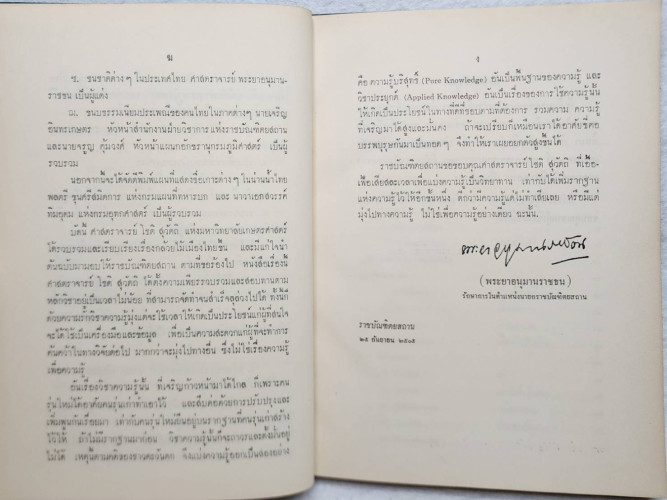 ฆ
ช. ชนชาติต่างๆ ในประเทศไทย ศาสตราจารย์ พระยาอนุมาน-
ราชธน เป็นผู้แต่ง
ฌ. ขนบธรรมเนียมประเพณีของคนไทยในภาคต่างๆ นายเจริญ
อินทรเกษตร หัวหน้าสำนักงานฝ่ายวิชาการ แห่งราชบัณฑิตยสถาน
และนายเจริญ หัวหน้าแผนกอักขรานุกรมภูมิศาสตร์ เป็นผู้
รวบรวม
นอกจากนี้จะได้จัดตีพิมพ์แผนที่แสดงชื่อเกาะต่างๆ ในน่านน้ำไทย
พลตรี ขุนศรีสมิตการ แห่งกรมแผนที่ทหารบก และ นาวาเอกสวรรค์
แห่งกรมอุทกศาสตร์ เป็นผู้รวบรวม
บัดนี้ ศาสตราจารย์ โชติ สุวัตถิ แห่งมหาวิทยาลัยเกษตรศาสตร์
ได้รวบรวมและเรียบเรียงเรื่องกล้วยไม้เมืองไทยขึ้น และมีแก่ใจนำ
ต้นฉบับมามอบให้ราชบัณฑิตยสถาน ตามที่ขอร้องไป หนังสือเรื่องนี้
ศาสตราจารย์ โชติ สุวัตถิ ได้ตั้งความเพียรรวบรวมและสอบทานตาม
หลักวิชาอยู่เป็นเวลาไม่น้อย ที่สามารถจัดทำจนสำเร็จลุล่วงไปได้ ทั้งนี้ก็
ด้วยความรักวิชาความรู้มุ่งแต่จะใช้เวลาให้เกิดเป็นประโยชน์แก่ผู้ที่สนใจ
จะได้ใช้เป็นเครื่องมือและข้อมูล เพื่อเป็นความสะดวกแก่ผู้ที่จะทำการ
ค้นคว้าในทางวิจัยต่อไป มากกว่าจะมุ่งไปทางอื่น ซึ่งไม่ใช่เรื่องความรู้
เพื่อความรู้
อันเรื่องวิชาความรู้นั้น ที่เจริญก้าวหน้ามาได้ไกล ก็เพราะคน
รุ่นใหม่ได้อาศัยคนรุ่นเก่าทำเอาไว้ และสืบต่อด้วยการปรับปรุงและ
เพิ่มพูนกันเรื่อยมา เท่ากับคนรุ่นใหม่ยืนอยู่บนรากฐานที่คนรุ่นเก่าสร้าง
ไว้ให้ ถ้าไม่มีรากฐานมาก่อน วิชาความรู้นั้นก็จะถาวรและตั้งมั่นอยู่
ไม่ได้ เหตุนี้ตามคติของชาวตะวันตก จึงแบ่งความรู้ออกเป็นสองอย่าง
ง
คือ ความรู้บริสุทธิ์ (Pore Knowledge) อันเป็นพื้นฐานของความรู้ และ
วิชาประยุกต์ (Applied Knowledge) อันเป็นเรื่องของการใช้ความรู้นั้น
ให้เกิดเป็นประโยชน์ในทางที่ดีที่ชอบตามที่ต้องการ รวมความ ความรู้
ที่เจริญมาได้สูงและมั่นคง ถ้าจะเปรียบก็เหมือนเราได้อาศัยขี่คอ
บรรพบุรุษกันมาเป็นทอดๆ จึงทำให้เราเผยอยกตัวสูงขึ้นได้
ราชบัณฑิตยสถานขอขอบคุณศาสตราจารย์ โชติ สุวัตถิ ที่เอื้อ-
เฟื้อเสียสละเวลาเพื่อแบ่งความรู้เป็นวิทยาทาน เท่ากับได้เพิ่มรากฐาน
แห่งความรู้ไว้ให้อีกชั้นหนึ่ง ดีกว่ามีความรู้แต่ไม่ทำเสียเลย หรือมีแต่
มุ่งไปทางความรู้ ไม่ใช่เพื่อความรู้อย่างเดียว ฉะนั้น.
(พระยาอนุมานราชธน)
รักษาการในตำแหน่งนายกราชบัณฑิตยสถาน
ราชบัณฑิตยสถาน
๒๕ กันยายน ๒๕๐๕